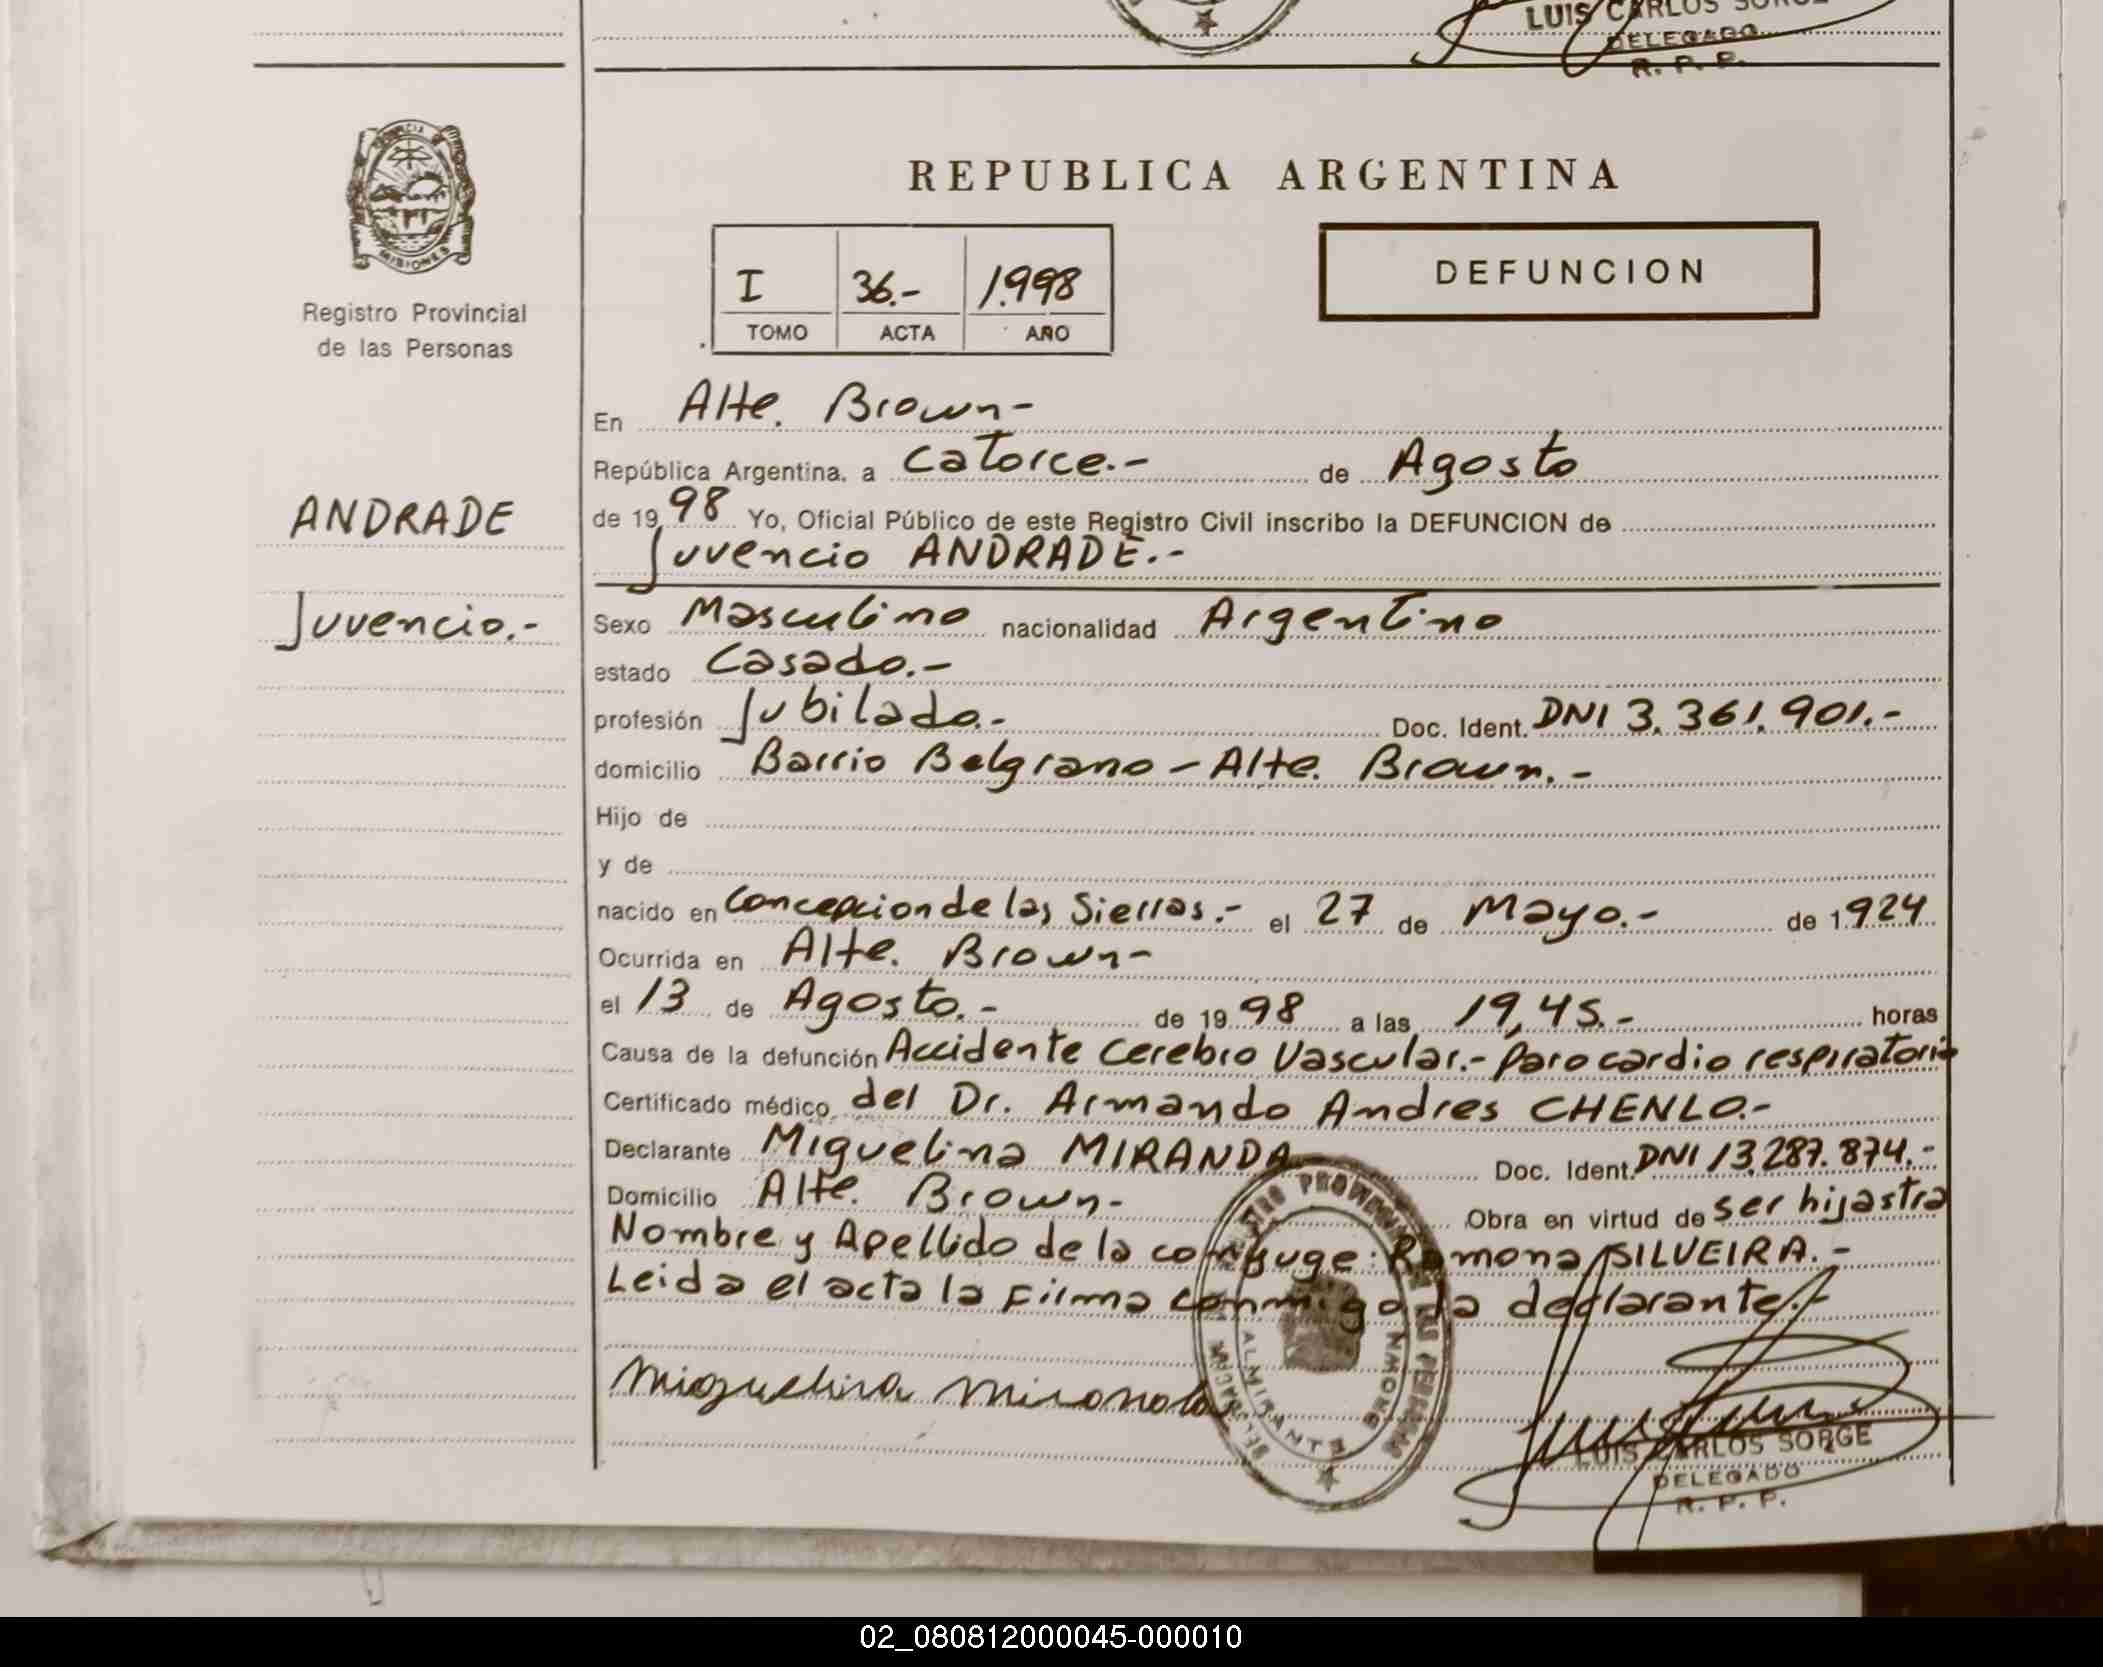 LUIS CARLOS SORGE
DELEGADO
R. P. P.
PROVINCIA DE
MISIONES
Registro Provincial
de las Personas
REPUBLICA ARGENTINA
I 36.- 1.998
TOMO ACTA AÑO
DEFUNCION
En Alte. Brown-
República Argentina, a Catorce.- de Agosto
ANDRADE
de 19 98 Yo, Oficial Público de este Registro Civil inscribo la DEFUNCION de
Juvencio ANDRADE.-
Juvencio.-
Sexo Masculino nacionalidad Argentino
estado Casado.-
profesión Jubilado.- Doc. Ident. DNI 3.361.901.-
domicilio Barrio Belgrano - Alte. Brown.-
Hijo de
y de
nacido en Concepcion de las Sierras.- el 27 de Mayo.- de 1924
Ocurrida en Alte. Brown-
el 13 de Agosto.- de 19 98 a las 19,45.- horas
Causa de la defunción Accidente Cerebro Vascular.- Paro cardio respiratorio
Certificado médico del Dr. Armando Andres CHENLO.-
Declarante Miguelina MIRANDA Doc. Ident. DNI 13.287.874.-
Domicilio Alte. Brown- Obra en virtud de ser hijastra
Nombre y Apellido de la conyuge: Ramona SILVEIRA.-
Leida el acta la firma conmigo la declarante.-
Miguelina Miranda
ALMIRANTE BROWN
LUIS CARLOS SORGE
DELEGADO
R. P. P.
02_080812000045-000010